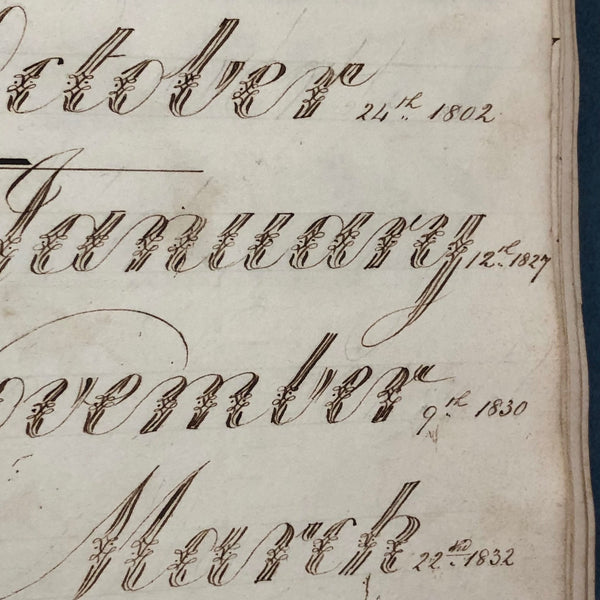 October 24th 1802
January 12th 1827
November 9th 1830
March 22nd 1832